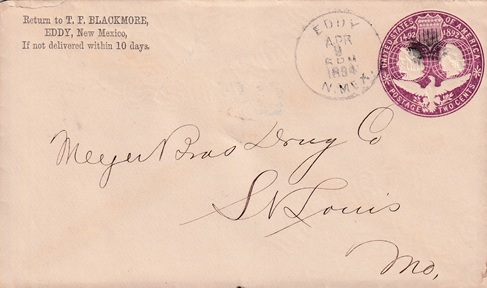 Return to T. F. BLACKMORE,
EDDY, New Mexico,
If not delivered within 10 days.
EDDY
APR
9
6 PM
1894
N. MEX.
UNITED STATES OF AMERICA
1492 1892
POSTAGE TWO CENTS
Meyer Bros Drug Co
St Louis
Mo.